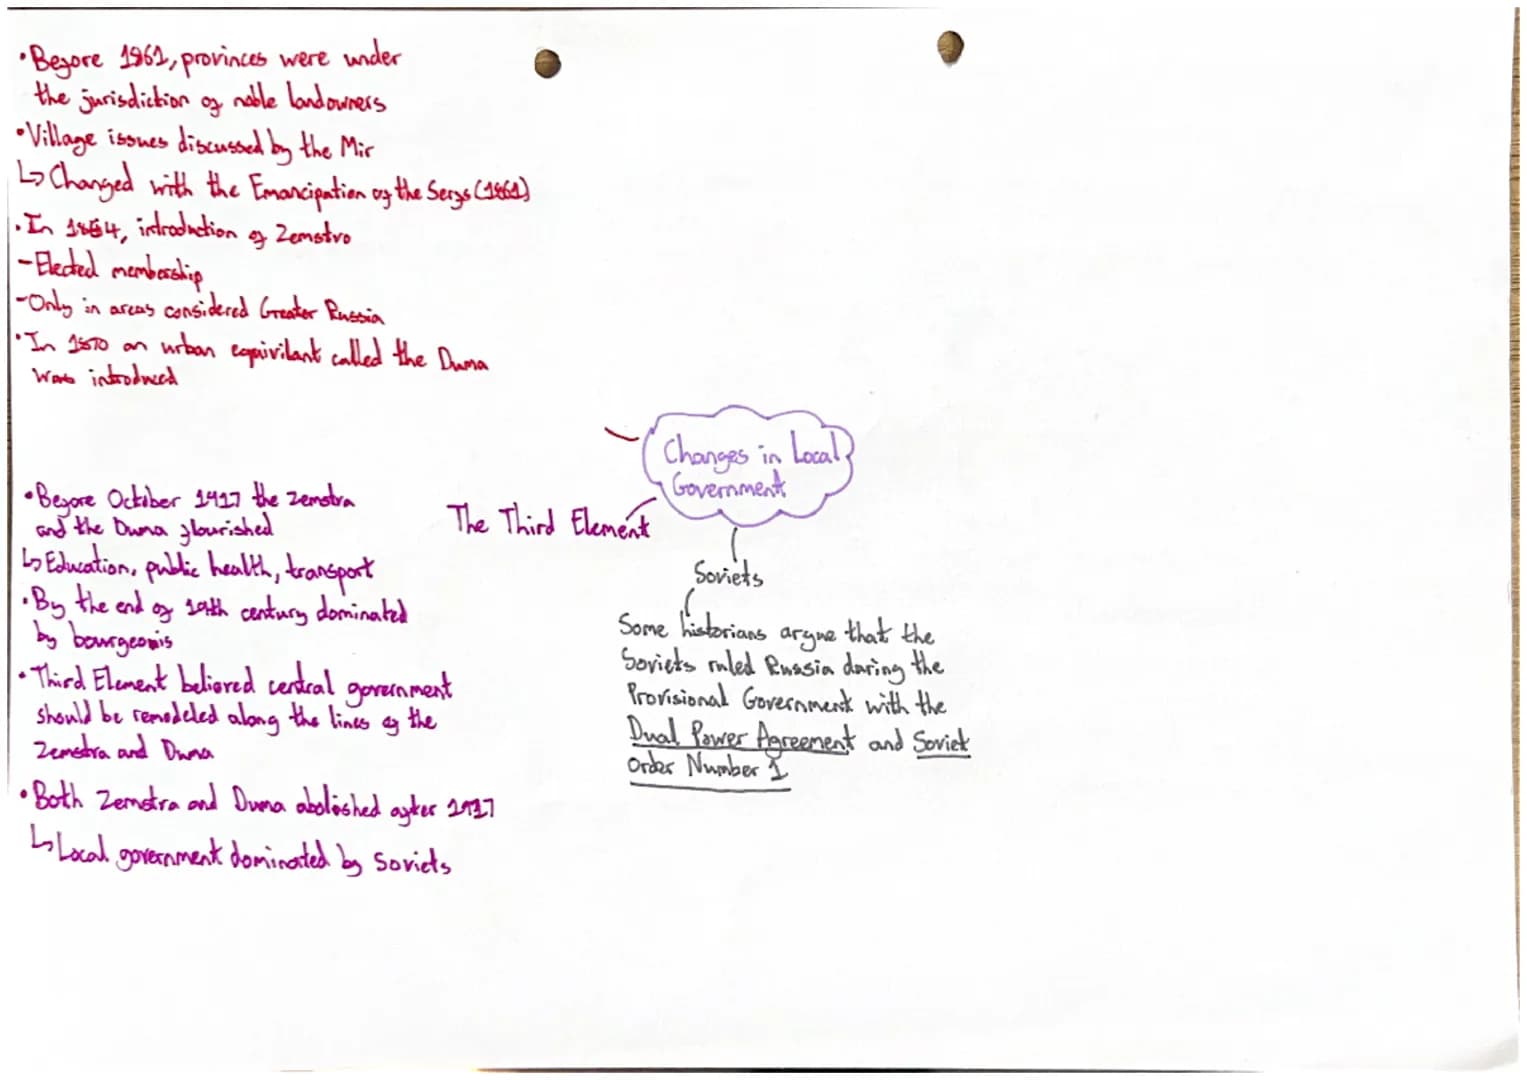 •Before 1861, provinces were under
the jurisdiction of noble landowners
•Village issues discussed by the Mir
↳Changed with the Emancipation of the Serfs (1861)
•In 1864, introduction of Zemstvo
-Elected membership
-Only in areas considered Greater Russia
•In 1870 an urban equivilant called the Duma
was introduced
Changes in Local
Government
•Before October 1917 the Zemstva
and the Duma flourished
↳Education, public health, transport
•By the end of 19th century dominated
by bourgeois
•Third Element believed central government
should be remodeled along the lines of the
Zemstva and Duma
•Both Zemstva and Duma abolished after 1917
↳Local government dominated by Soviets
The Third Element
Soviets
Some historians argue that the
Soviets ruled Russia during the
Provisional Government with the
Dual Power Agreement and Soviet
Order Number 1